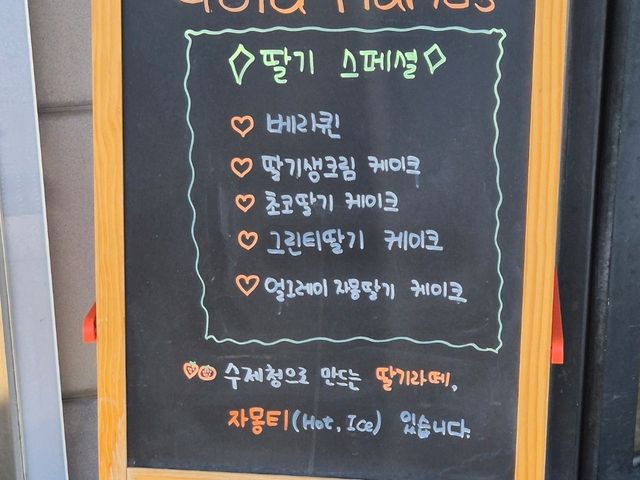 Gold Hands
딸기 스페셜
베리퀸
딸기생크림 케이크
초코딸기 케이크
그린티딸기 케이크
얼그레이 자몽딸기 케이크
수제청으로 만드는 딸기라떼,
자몽티(Hot, Ice) 있습니다.